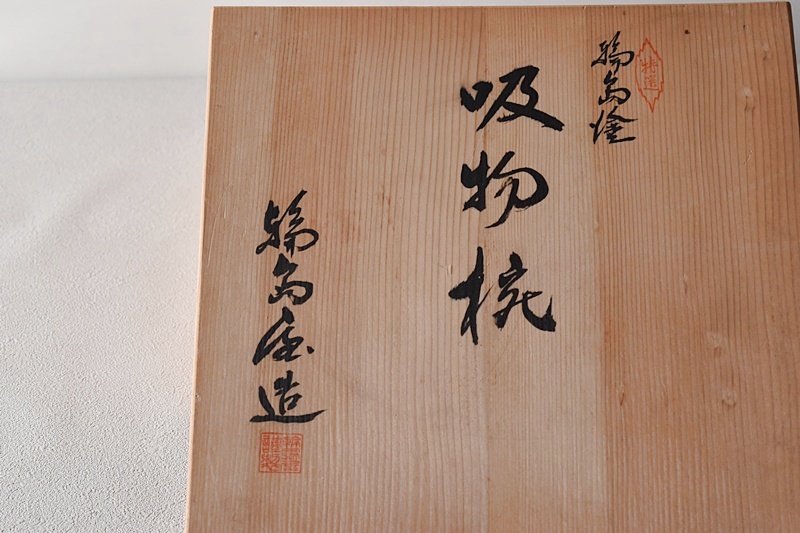 特選
輪島塗
吸物椀
輪島屋造